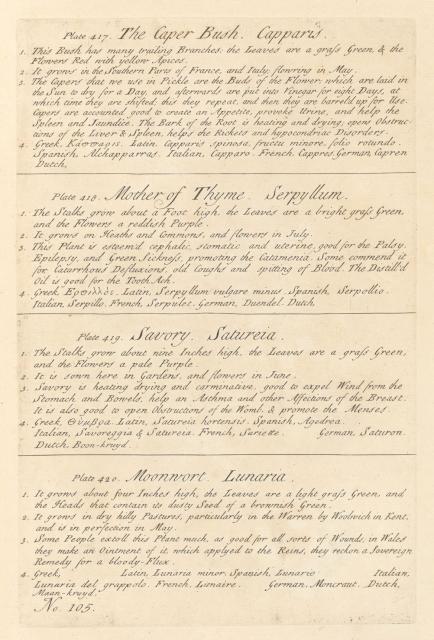 Plate 417. The Caper Bush. Capparis.
1. This Bush has many trailing Branches, the Leaves are a grass Green, & the
Flowers Red with yellow Apices.
2. It grows in the Southern Parts of France, and Italy, flowring in May.
3. The Capers that we use in Pickle are the Buds of the Flower; which are laid in
the Sun to dry for a Day, and afterwards are put into Vinegar for eight Days, at
which time they are shifted; this they repeat, and then they are barrel'd up for Use.
Capers are accounted good to create an Appetite, provoke Urine, and help the
Spleen and Jaundice. The Bark of the Root is heating and drying, opens Obstruc-
tions of the Liver & Spleen, helps the Rickets and hypocondriac Disorders.
4. Greek, Κάππαρις. Latin, Capparis spinosa, fructu minore, folio rotundo.
Spanish, Alchapparras. Italian, Capparo. French, Cappres. German, Capren
Dutch,
Plate 418. Mother of Thyme. Serpyllum.
1. The Stalks grow about a Foot high, the Leaves are a bright grass Green,
and the Flowers a reddish Purple.
2. It grows on Heaths and Commons, and flowers in July.
3. This Plant is esteem'd cephalic, stomatic and uterine, good for the Palsy,
Epilepsy, and Green Sickness, promoting the Catamenia. Some commend it
for Catarrhous Defluxions, old Coughs and spitting of Blood. The Distill'd
Oil is good for the Tooth Ach.
4. Greek, Latin, Serpyllum vulgare minus. Spanish, Serpollio.
Italian, Serpillo. French, Serpulet. German, Duendel. Dutch,
Plate 419. Savory. Satureia.
1. The Stalks grow about nine Inches high, the Leaves are a grass Green,
and the Flowers a pale Purple.
2. It is sown here in Gardens, and flowers in June.
3. Savory is heating drying and carminative, good to expel Wind from the
Stomach and Bowels, help an Asthma and other Affections of the Breast.
It is also good to open Obstructions of the Womb, & promote the Menses.
4. Greek, Θύμβρα. Latin, Satureia hortensis. Spanish, Agedrea.
Italian, Savoreggia & Satureia. French, Sariette. German, Saturon.
Dutch, Boon-kruyd.
Plate 420. Moonwort. Lunaria.
1. It grows about four Inches high, the Leaves are a light grass Green, and
the Heads that contain its dusty Seed of a brownish Green.
2. It grows in dry hilly Pastures, particularly in the Warren by Woolwich in Kent,
and is in perfection in May.
3. Some People extoll this Plant much, as good for all sorts of Wounds, in Wales
they make an Ointment of it, which applyed to the Reins, they reckon a Sovereign
Remedy for a bloody-Flux.
4. Greek, Latin, Lunaria minor. Spanish, Lunario Italian,
Lunaria del grappolo. French, Lunaire. German, Moncraut. Dutch,
Maan-kruyd.
No. 105.